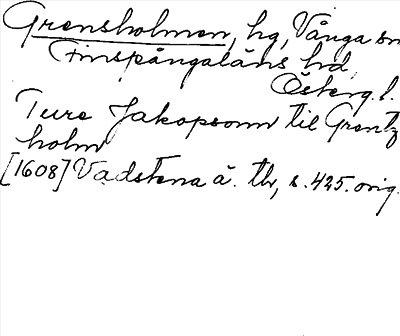 Grensholmen, hg, Vånga sn
Finspångaläns hd,
Österg. l.
Ture Jakopsonn til Grentz
holm
[1608] Vadstena ä. tb, s. 425. orig.